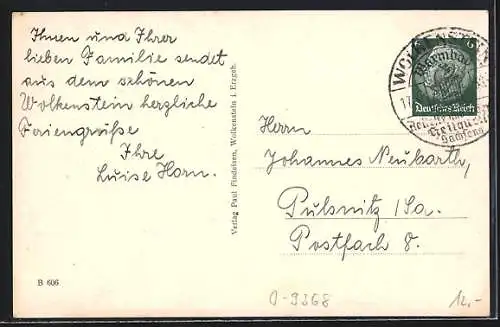 Ihnen und Ihrer
lieben Familie sendet
aus dem schönen
Wolkenstein herzliche
Feriengrüße
Ihre
Luise Horn.
B 606
Verlag Paul Findeisen, Wolkenstein i. Erzgeb.
WOLKENSTEIN
Warmbad
6
Deutsches Reich
Sachsens
Herrn
Johannes Neubarth,
Pulsnitz /Sa.
Postfach 8.
O-9368
12,-